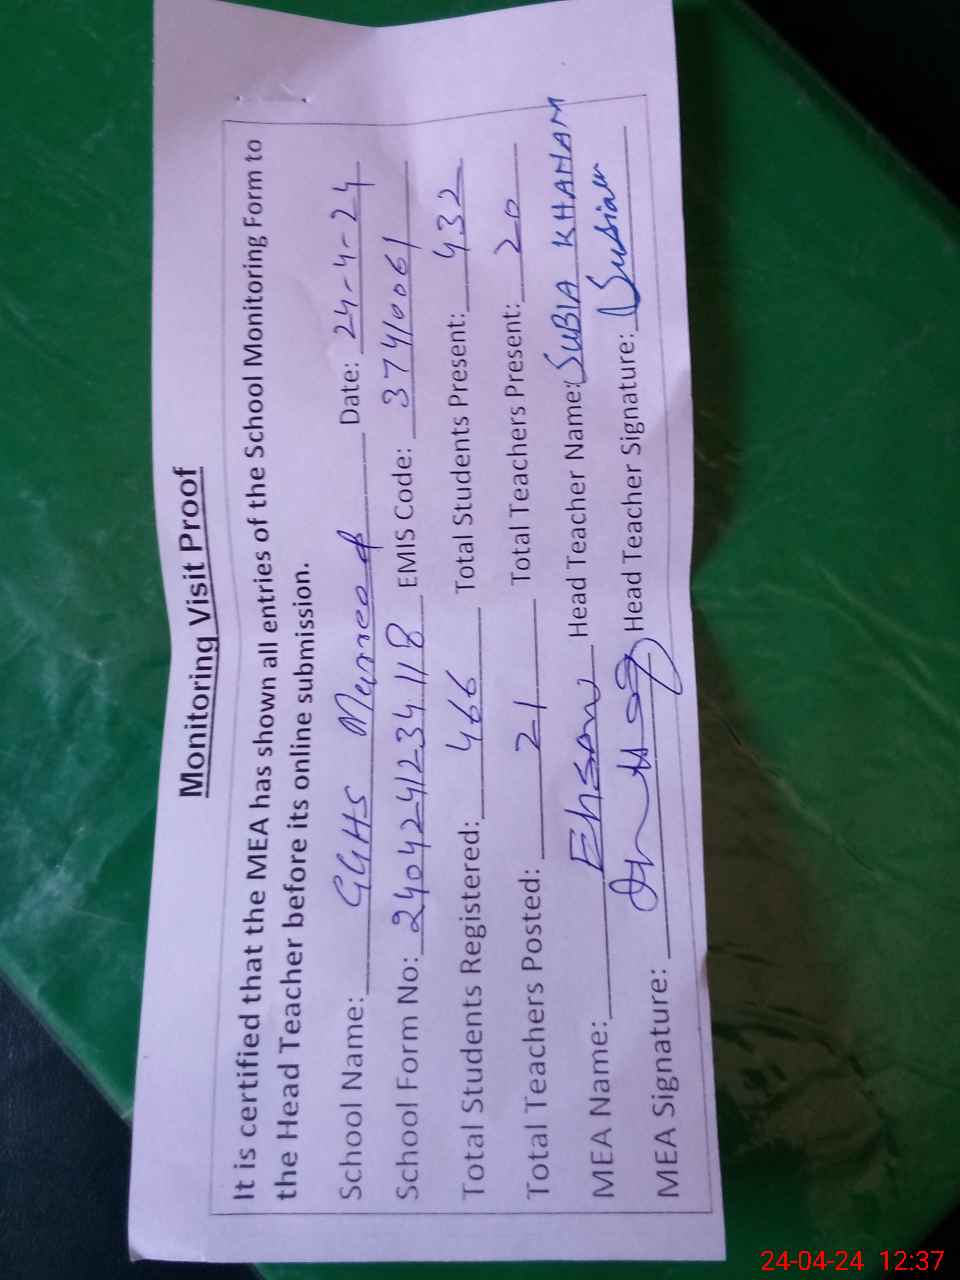 Monitoring Visit Proof
It is certified that the MEA has shown all entries of the School Monitoring Form to
the Head Teacher before its online submission.
School Name: GGHS Mureed Date: 24-4-24
School Form No: 2404241234118 EMIS Code: 37410061
Total Students Registered: 466 Total Students Present: 432
Total Teachers Posted: 21 Total Teachers Present: 20
MEA Name: Ehsan Head Teacher Name: SUBIA KHANAM
MEA Signature: Head Teacher Signature:
24-04-24 12:37